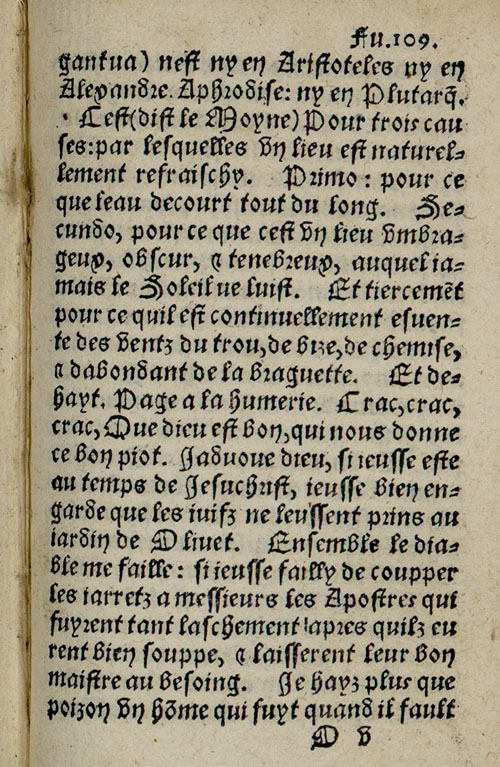 Fu.109.
gantua) nest ny en Aristoteles ny en
Alexandre Aphrodise: ny en Plutarq̄.
Cest(dist le Moyne)Pour trois cau
ses:par lesquelles vn lieu est naturel-
lement refraischy. Primo: pour ce
que leau decourt tout du long. Se-
cundo, pour ce que cest vn lieu vmbra-
geux, obscur, ⁊ tenebreux, auquel ia-
mais le Soleil ne luist. Et tiercemẽt
pour ce quil est continuellement esuen-
te des ventz du trou, de bize, de chemise,
⁊ dabondant de la braguette. Et de-
hayt. Page a la humerie. Crac, crac,
crac, Que dieu est bon, qui nous donne
ce bon piot. Jaduoue dieu, si ieusse este
au temps de Jesuchrist, ieusse bien en-
garde que les iuifz ne leussent prins au
iardin de Oliuet. Ensemble le dia-
ble me faille: si ieusse failly de coupper
les iarretz a messieurs les Apostres qui
fuyrent tant laschement apres quilz eu
rent bien souppe, ⁊ laisserent leur bon
maistre au besoing. Je hayz plus que
poizon vn hõme qui fuyt quand il fault
O v